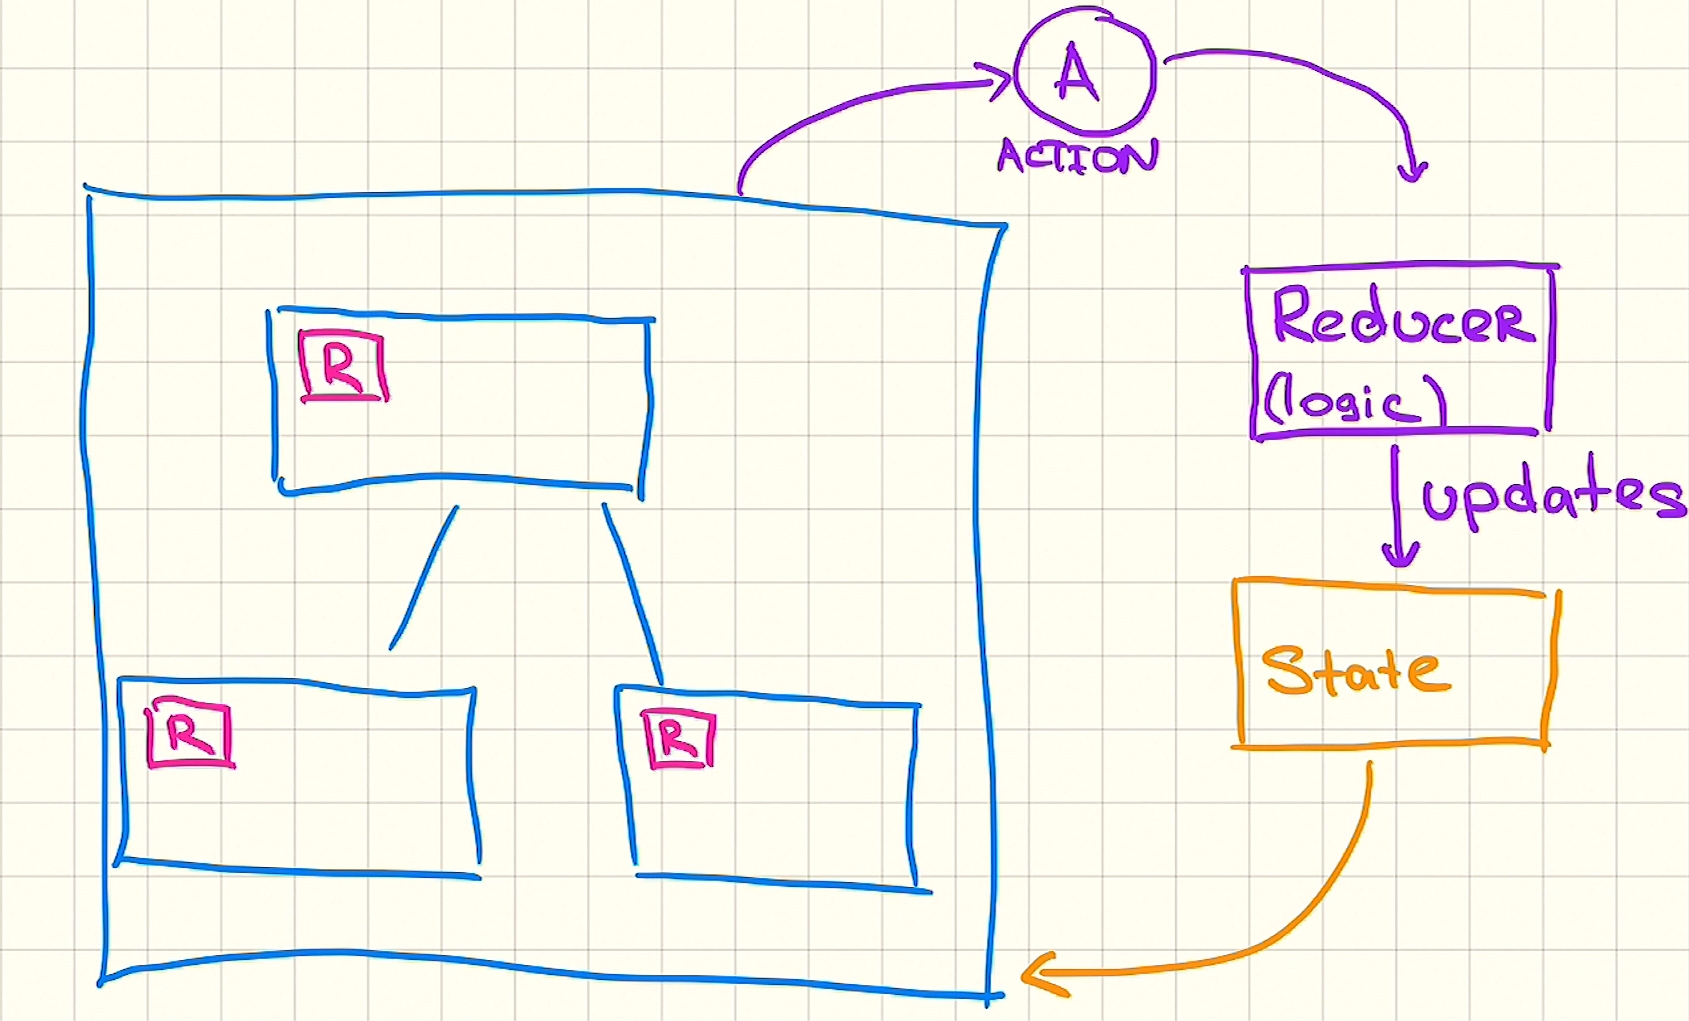 A
ACTION
R
Reducer
(logic)
updates
State
R
R